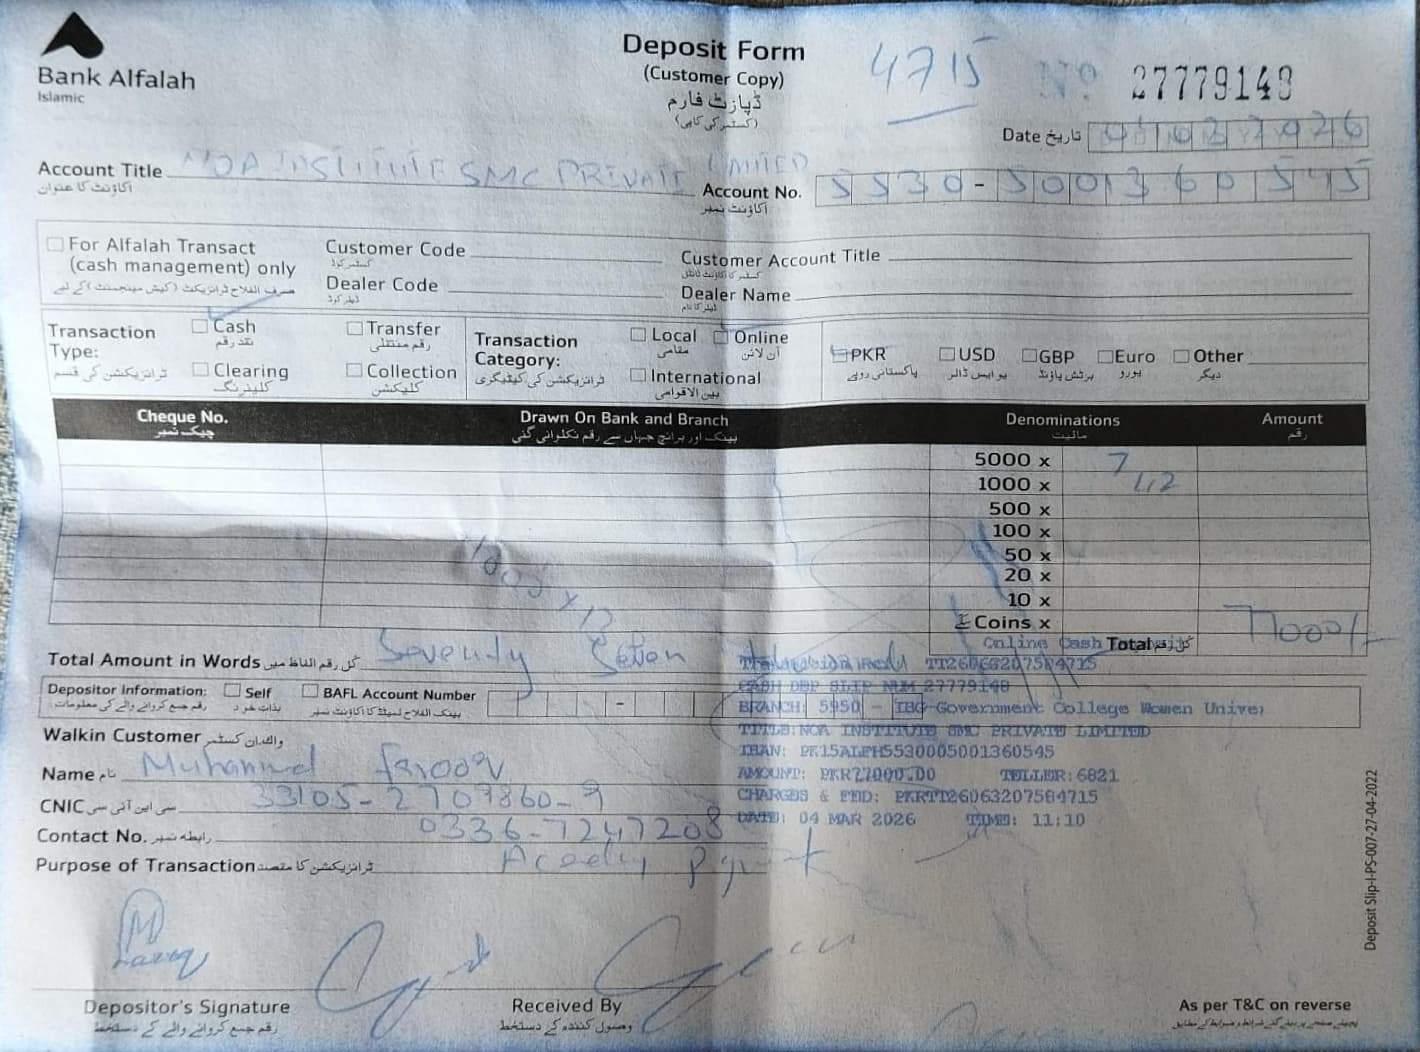 Bank Alfalah
Islamic
Deposit Form
(Customer Copy)
ڈپازٹ فارم
(کسٹمر کی کاپی)
4715
No 27779148
Date تاریخ 04032026
Account Title NOA INSTITUTE SMC PRIVATE LIMITED
اکاؤنٹ کا عنوان
Account No. 5530-5001360545
اکاؤنٹ نمبر
For Alfalah Transact
(cash management) only
صرف الفلاح ٹرانزیکٹ (کیش مینجمنٹ) کے لیے
Customer Code
کسٹمر کوڈ
Customer Account Title
کسٹمر کا اکاؤنٹ ٹائٹل
Dealer Code
ڈیلر کوڈ
Dealer Name
ڈیلر کا نام
Transaction Type:
ٹرانزیکشن کی قسم
Cash
نقد رقم
Transfer
رقم منتقلی
Clearing
کلیئرنگ
Collection
کلیکشن
Transaction Category:
ٹرانزیکشن کی کیٹیگری
Local
مقامی
Online
آن لائن
International
بین الاقوامی
PKR
پاکستانی روپے
USD
یو ایس ڈالر
GBP
برٹش پاؤنڈ
Euro
یورو
Other
دیگر
Cheque No.
چیک نمبر
Drawn On Bank and Branch
بینک اور برانچ جہاں سے رقم نکلوائی گئی
Denominations
مالیت
Amount
رقم
5000 x 7
1000 x 42
500 x
100 x
50 x
20 x
10 x
Coins x
1000 x 12
Total کل رقم 77000/-
Total Amount in Words کل رقم الفاظ میں Seventy Seven
Online Cash
TT26063207584715
CASH DEP SLIP NUM 27779148
BRANCH: 5950 - IBG-Government College Women Univer
TITLE:NOA INSTITUTE SMC PRIVATE LIMITED
IBAN: PK15ALFH5530005001360545
AMOUNT: PKR77000.00 TELLER:6821
CHARGES & FED: PKRTT26063207584715
DATE: 04 MAR 2026 TIME: 11:10
Depositor Information:
رقم جمع کروانے والے کی معلومات
Self
بذات خود
BAFL Account Number
بینک الفلاح لمیٹڈ کا اکاؤنٹ نمبر
Walkin Customer واک ان کسٹمر
Name نام Muhammad farooq
CNIC سی این آئی سی 33105-2709860-9
Contact No. رابطہ نمبر 0336-7247208
Purpose of Transaction ٹرانزیکشن کا مقصد
Depositor's Signature
رقم جمع کروانے والے کے دستخط
Received By
وصول کنندہ کے دستخط
As per T&C on reverse
Deposit Slip-I-PS-007-27-04-2022